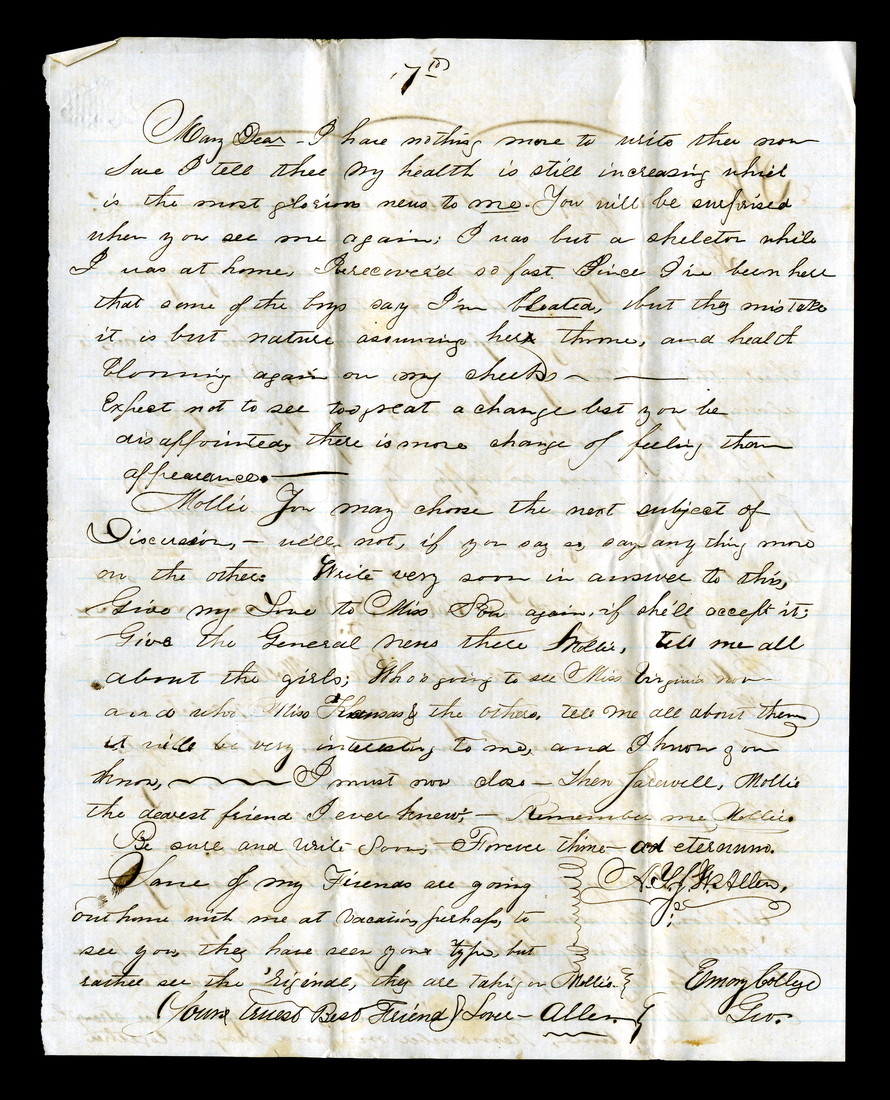 7th
Mary Dear - I have nothing more to write thee now
Save I tell thee my health is still increasing which
is the most glorious news to me. You will be surprised
when you see me again; I was but a skeleton while
I was at home, I've recovered so fast Since I've been here
that some of the boys say I'm bloated, but they mistake
it is but nature assuming her throne, and health
blooming again on my cheeks
Expect not to see too great a change lest you be
disappointed, there is more change of feeling than
appearance.
Mollie You may choose the next subject of
Discussion, - we'll not, if you say so, say any thing more
on the other: Write very soon in answer to this,
Give my Love to Miss again, if she'll accept it;
Give the General news there Mollie, tell me all
about the girls; Who's going to see Miss Virginia now
and who Miss Kansas & the others, tell me all about them
it will be very interesting to me, and I know you
know, I must now close - Then farewell, Mollie
the dearest friend I ever knew; - Remember me Mollie.
Be sure and write Soon; - Forever thine - ad eternum.
Some of my Friends are going
A. W. Allen,
out home with me at vacation, perhaps, to
see you, they have seen your type, but
rather see the they are taking on Mollie.
Emory College
(Yours truest Best Friend & Lover - Allen
Geo.